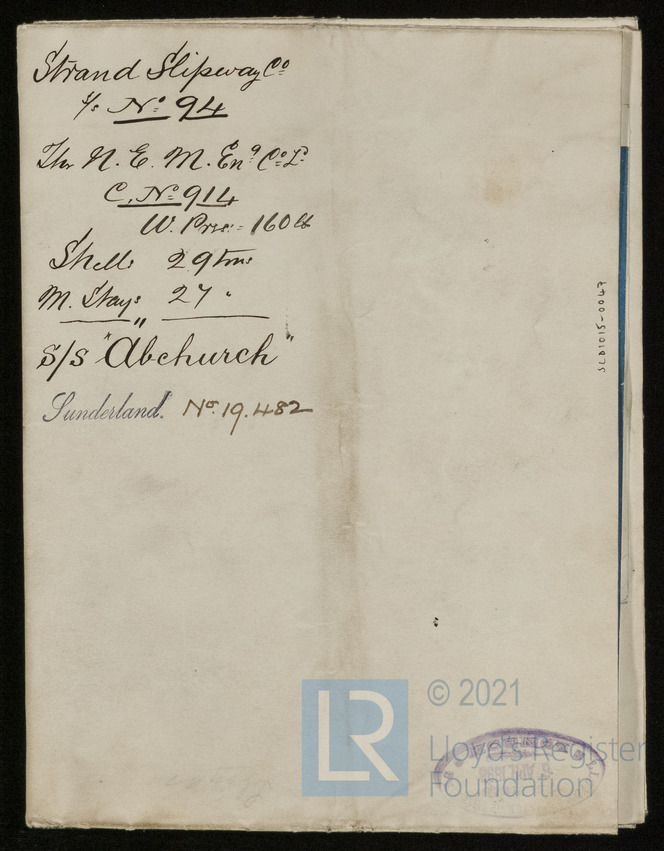 Strand Slipway Co
s/s No. 94
The N. E. M. Eng Co. Ld.
C. No. 914
W. Pres: = 160 lb
Shells 29 tons
M. Stays 27 "
s/s "Abchurch"
Sunderland. No. 19.482
SLD1015-0047
LR
© 2021
Lloyd's Register
Foundation